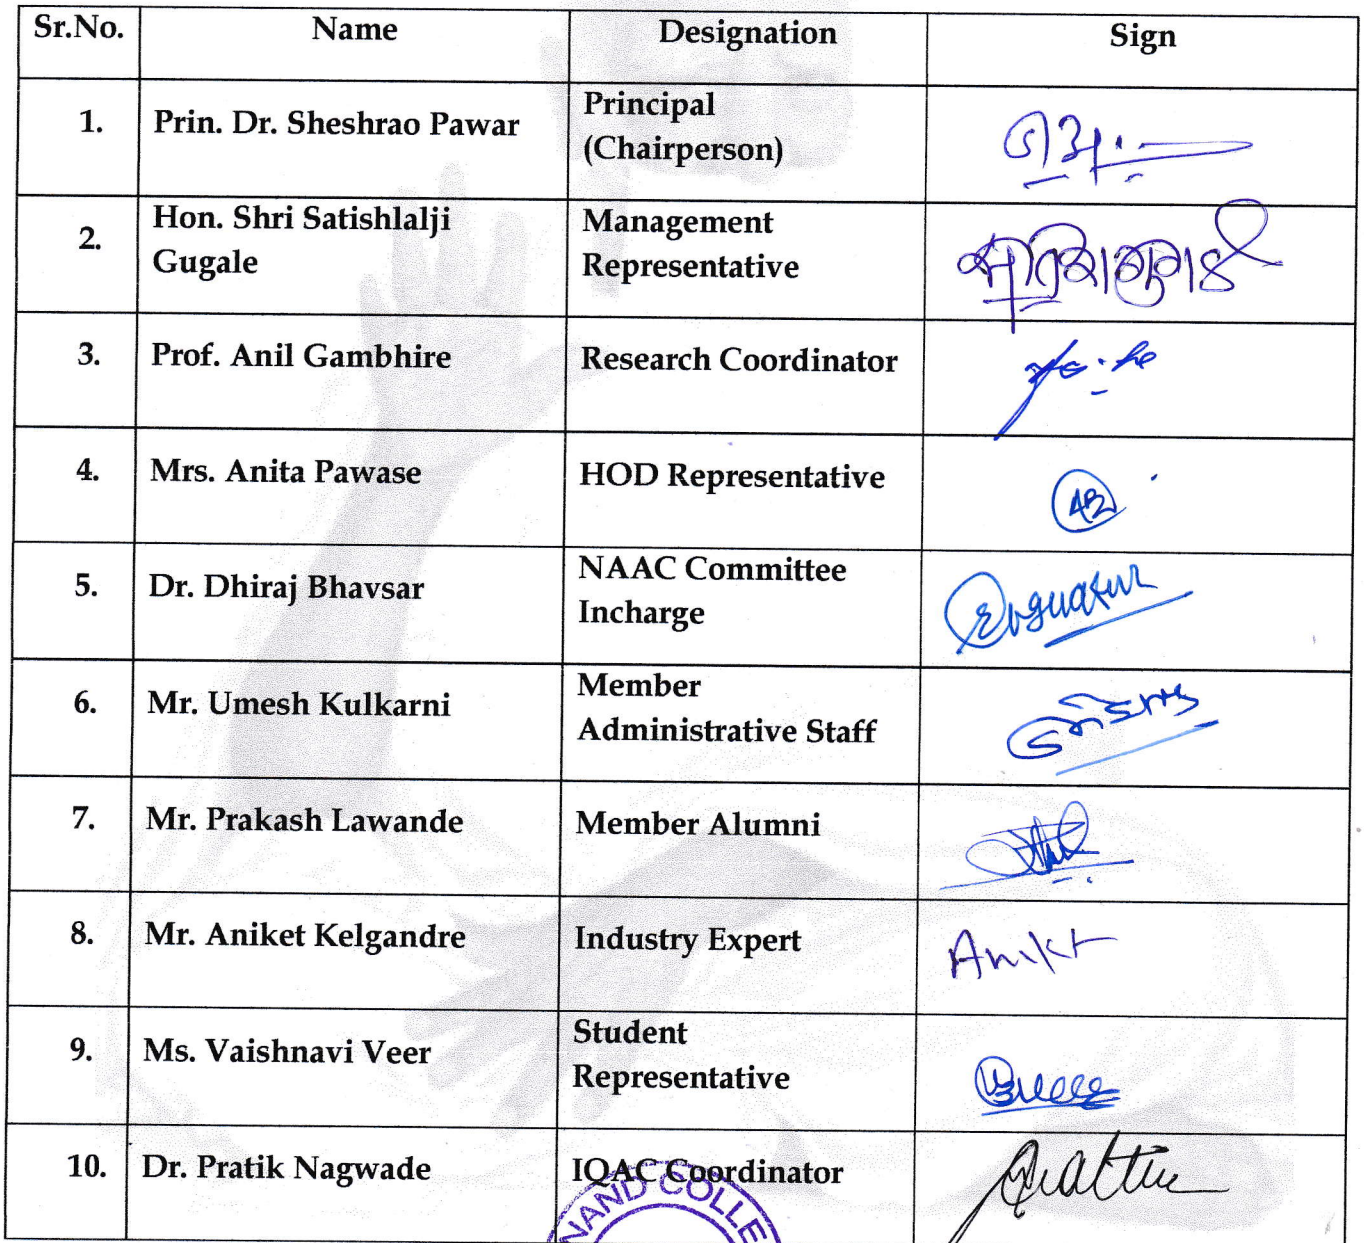 Sr.No. Name Designation Sign
1. Prin. Dr. Sheshrao Pawar Principal
(Chairperson)
2. Hon. Shri Satishlalji
Gugale
Management
Representative
3. Prof. Anil Gambhire Research Coordinator
4. Mrs. Anita Pawase HOD Representative
5. Dr. Dhiraj Bhavsar NAAC Committee
Incharge
6. Mr. Umesh Kulkarni Member
Administrative Staff
7. Mr. Prakash Lawande Member Alumni
8. Mr. Aniket Kelgandre Industry Expert
9. Ms. Vaishnavi Veer Student
Representative
10. Dr. Pratik Nagwade IQAC Coordinator